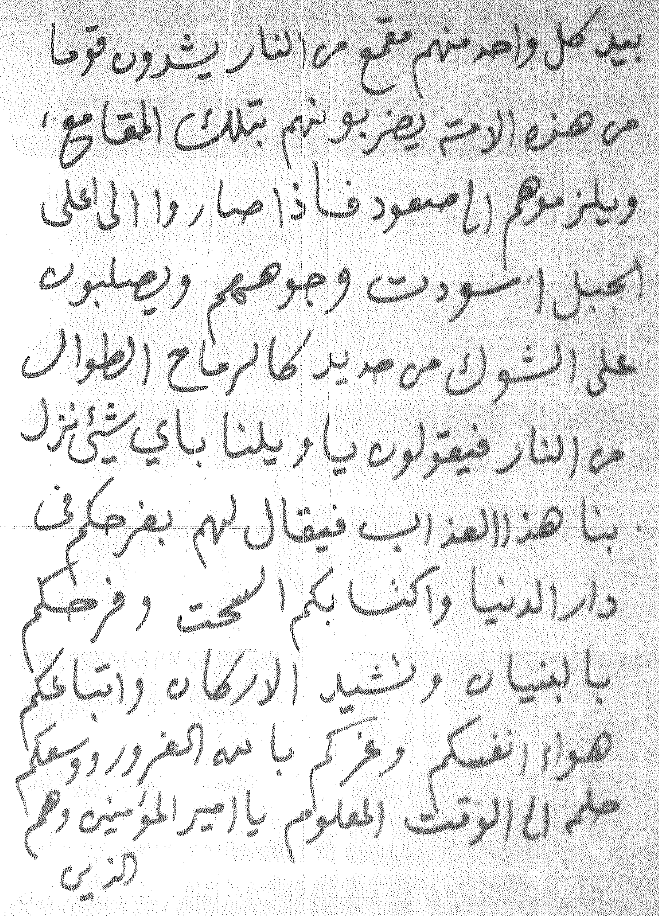 بيد كل واحد منهم مقمع من النار يشدون قوما
من هذه الامة يضربونهم بتلك المقامع،
ويلزموهم الى صعود فاذا صاروا الى اعلى
الجبل اسودت وجوههم ويصلبون
على الشوك من حديد كالرماح الطوال
من النار فيقولون يا ويلنا باي شيئ نزل
بنا هذا العذاب فيقال لهم بفرحكم فى
دار الدنيا واكتسابكم السحت وفرحكم
بالبنيان وتشييد الاركان واتباعكم
هواء انفسكم وغركم بالله الغرور ووسعكم
حلمه الى الوقت المعلوم يا امير المؤمنين وهم
الذين